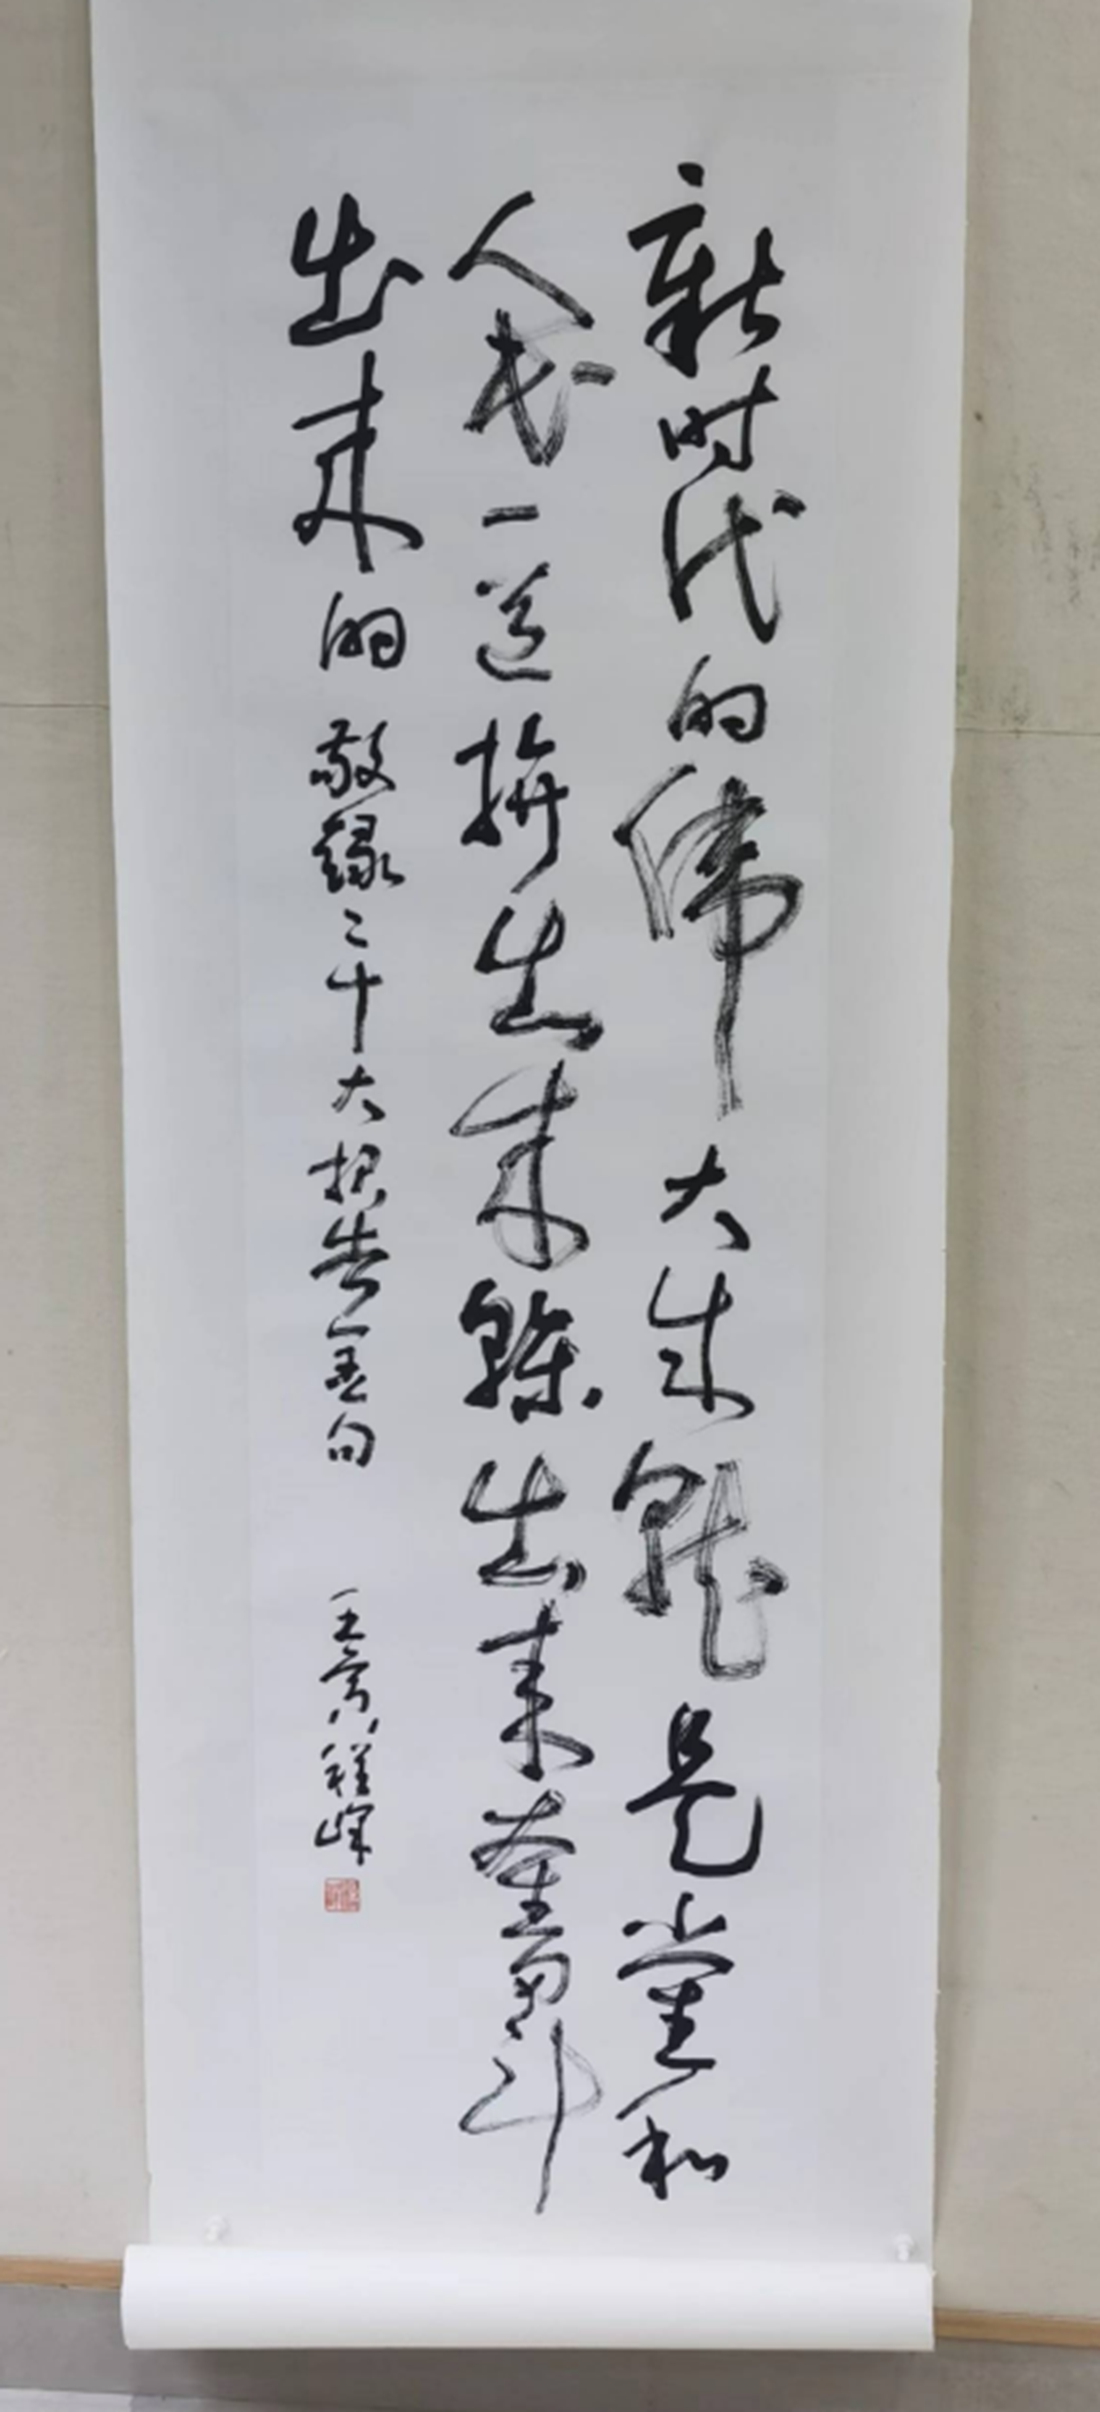 新时代的伟大成就是党和
人民一道拚出来干出来奋斗
出来的 敬录二十大报告金句
程峰